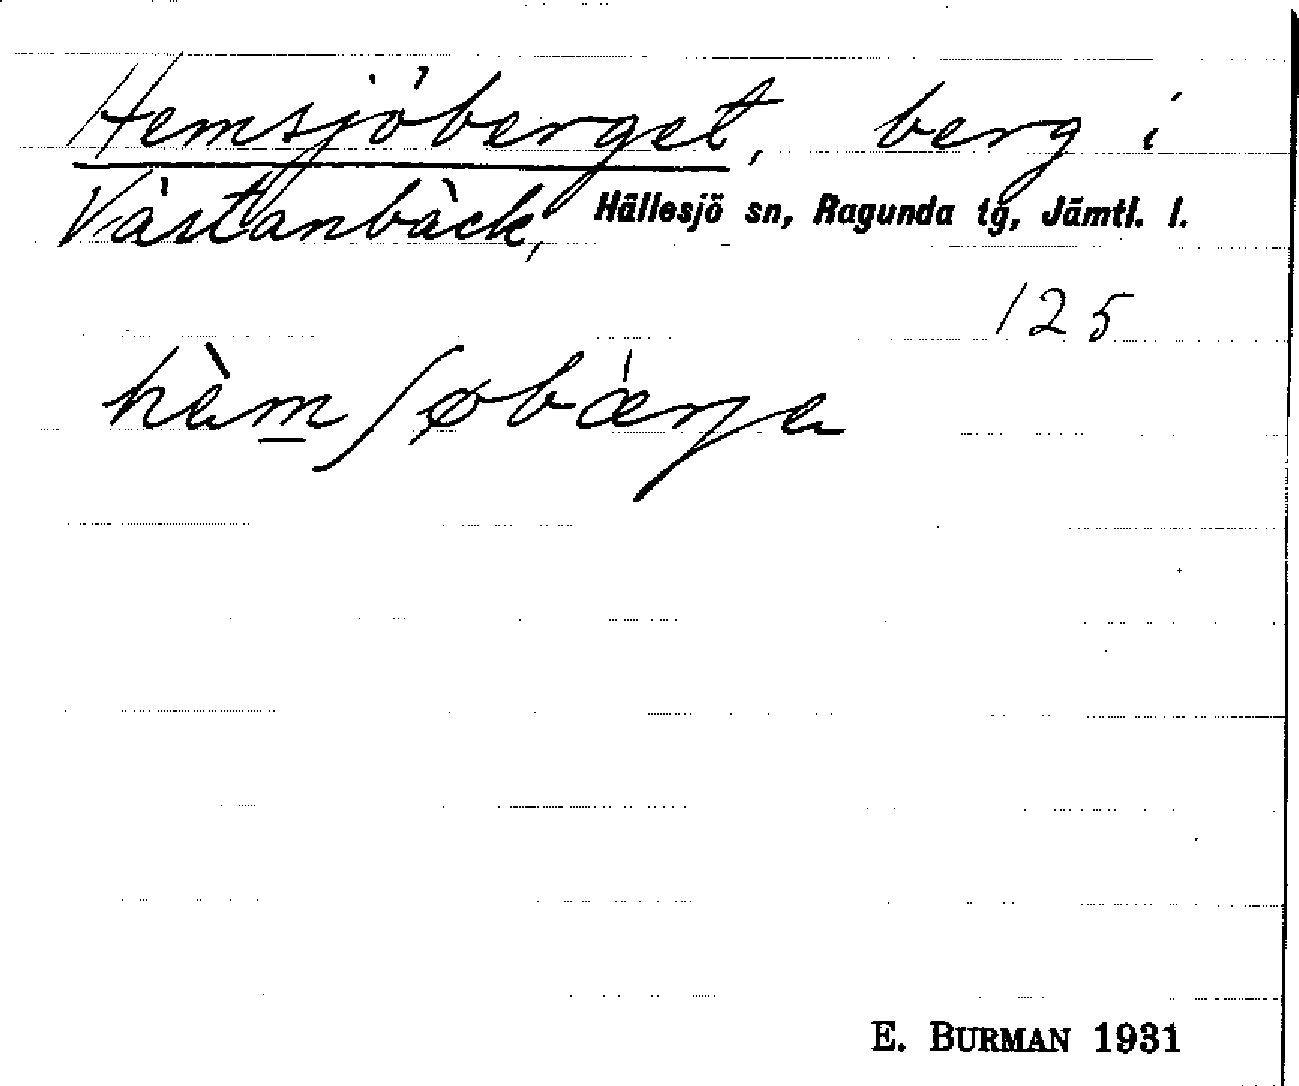 Hemsjöberget, berg i
Västanbäck, Hällesjö sn, Ragunda tg, Jämtl. l.
125
hèmʃøbǽrja
E. BURMAN 1931